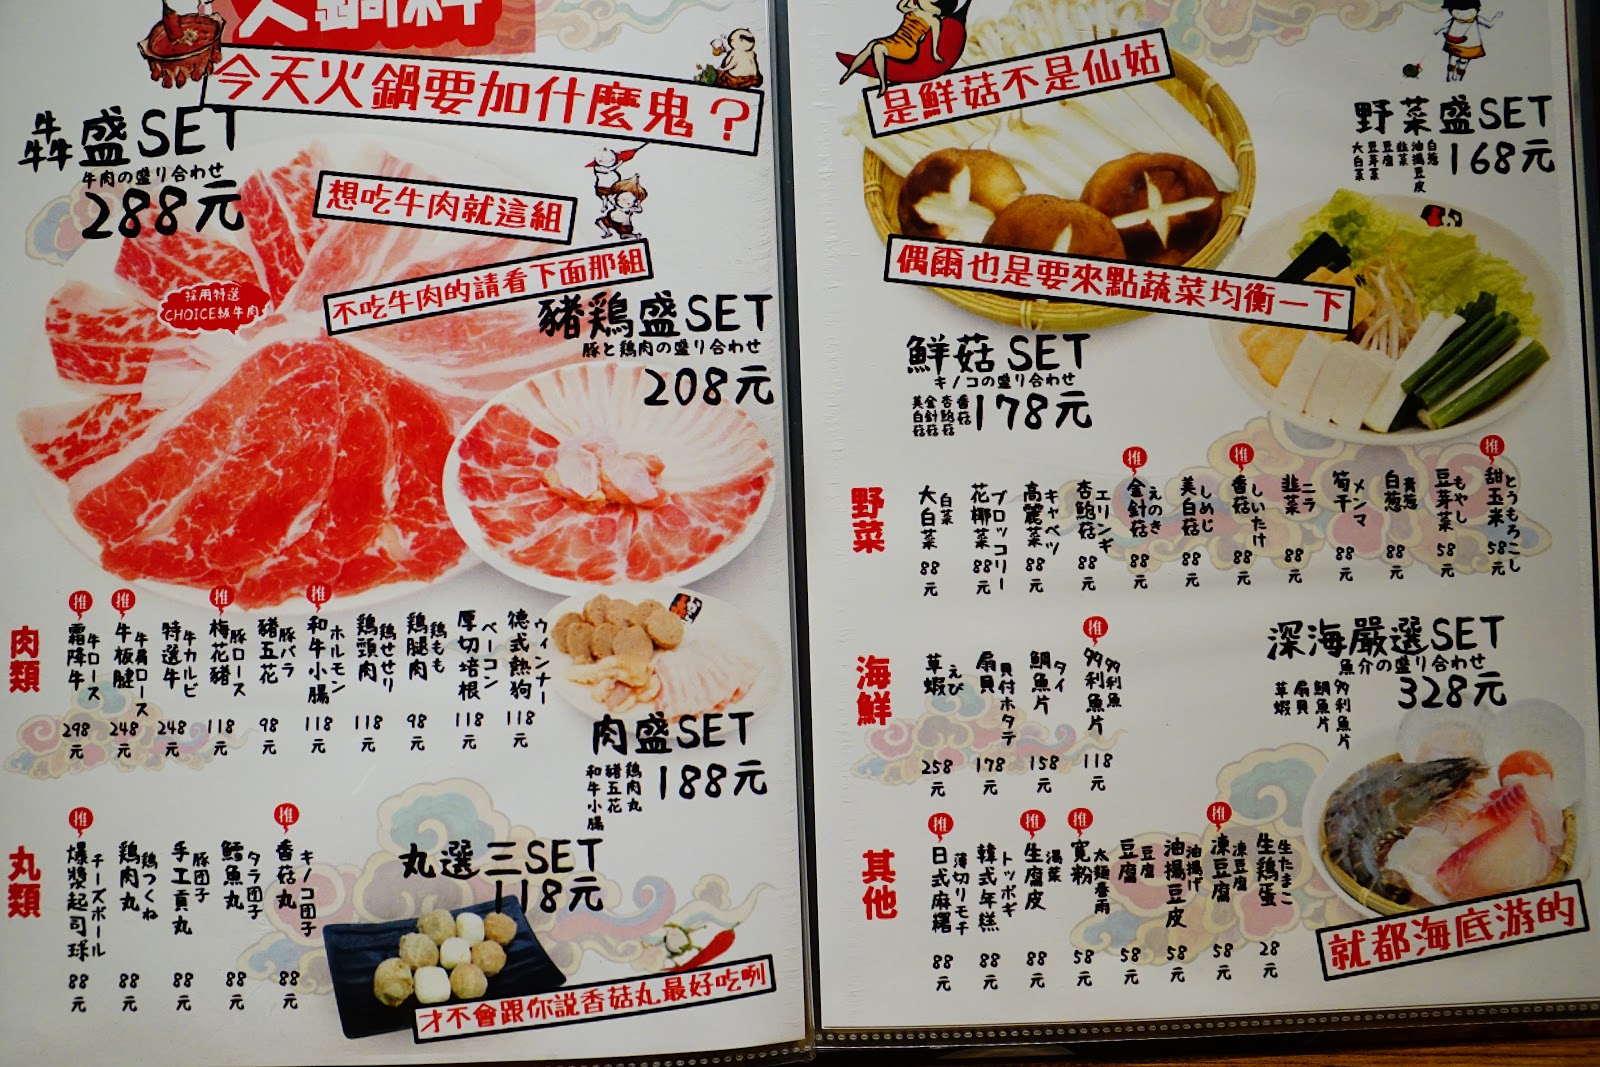 火鍋料
今天火鍋要加什麼鬼？
犇盛SET
牛肉の盛り合わせ
288元
想吃牛肉就這組
不吃牛肉的請看下面那組
採用特選
CHOICE級牛肉
豬鶏盛SET
豚と鶏肉の盛り合わせ
208元
肉類
推 霜降牛 牛ロース 298元
推 牛板腱 牛肩ロース 248元
特選牛 牛カルビ 248元
推 梅花豬 豚ロース 118元
豬五花 豚バラ 98元
推 和牛小腸 ホルモン 118元
鶏頸肉 鶏せせり 118元
鶏腿肉 鶏もも 98元
厚切培根 ベーコン 118元
德式熱狗 ウィンナー 118元
肉盛SET
188元
鶏肉丸
豬五花
和牛小腸
丸類
推 爆漿起司球 チーズボール 88元
鶏肉丸 鶏つくね 88元
手工貢丸 豚団子 88元
鱈魚丸 タラ団子 88元
推 香菇丸 キノコ団子 88元
丸選三SET
118元
才不會跟你説香菇丸最好吃咧
是鮮菇不是仙姑
野菜盛SET
168元
白葱
油揚豆皮
韮菜
豆腐
豆芽菜
大白菜
偶爾也是要來點蔬菜均衡一下
鮮菇SET
キノコの盛り合わせ
178元
香菇
杏鮑菇
金針菇
美白菇
野菜
大白菜 白菜 88元
花椰菜 ブロッコリー 88元
高麗菜 キャベツ 88元
杏鮑菇 エリンギ 88元
推 金針菇 えのき 88元
美白菇 しめじ 88元
推 香菇 しいたけ 88元
韮菜 ニラ 88元
筍干 メンマ 88元
白葱 青葱 88元
豆芽菜 もやし 58元
推 甜玉米 とうもろこし 58元
海鮮
草蝦 えび 258元
扇貝 貝付ホタテ 178元
鯛魚片 タイ 158元
推 多利魚片 多利魚 118元
深海嚴選SET
魚介の盛り合わせ
328元
多利魚片
鯛魚片
扇貝
草蝦
其他
推 日式麻糬 薄切りモチ 88元
韓式年糕 トッポギ 88元
推 生腐皮 湯葉 88元
推 寬粉 太麺春雨 58元
豆腐 豆腐 58元
油揚豆皮 油揚げ 58元
推 凍豆腐 凍豆腐 58元
生鶏蛋 生たまご 28元
就都海底游的